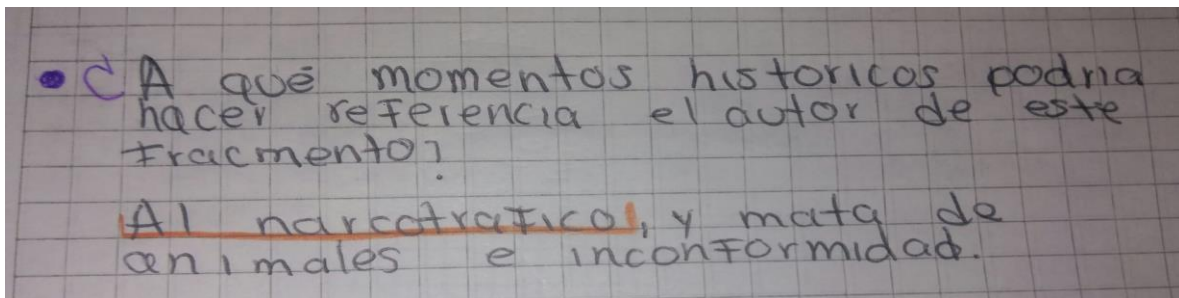 • ¿A qué momentos historicos podria
hacer referencia el autor de este
fracmento?
Al narcotrafico, y mata de
animales e inconformidad.